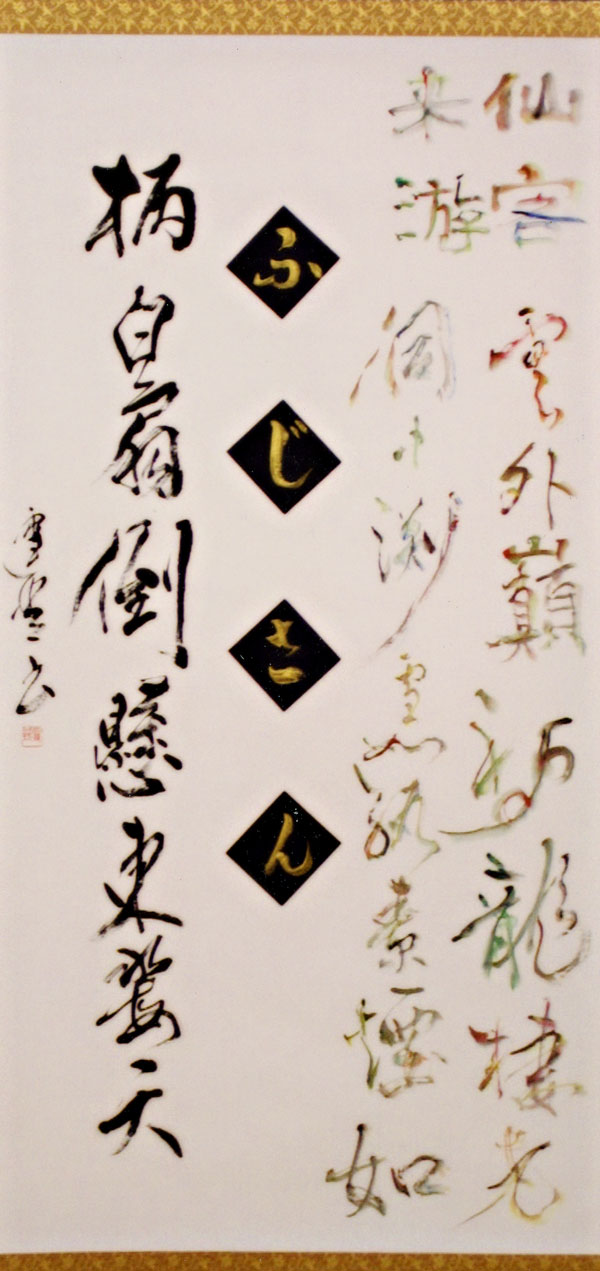 仙客雲外巓神龍棲老
来游洞中渕雪如紈素煙如
ふじさん
柄白扇倒懸東海天